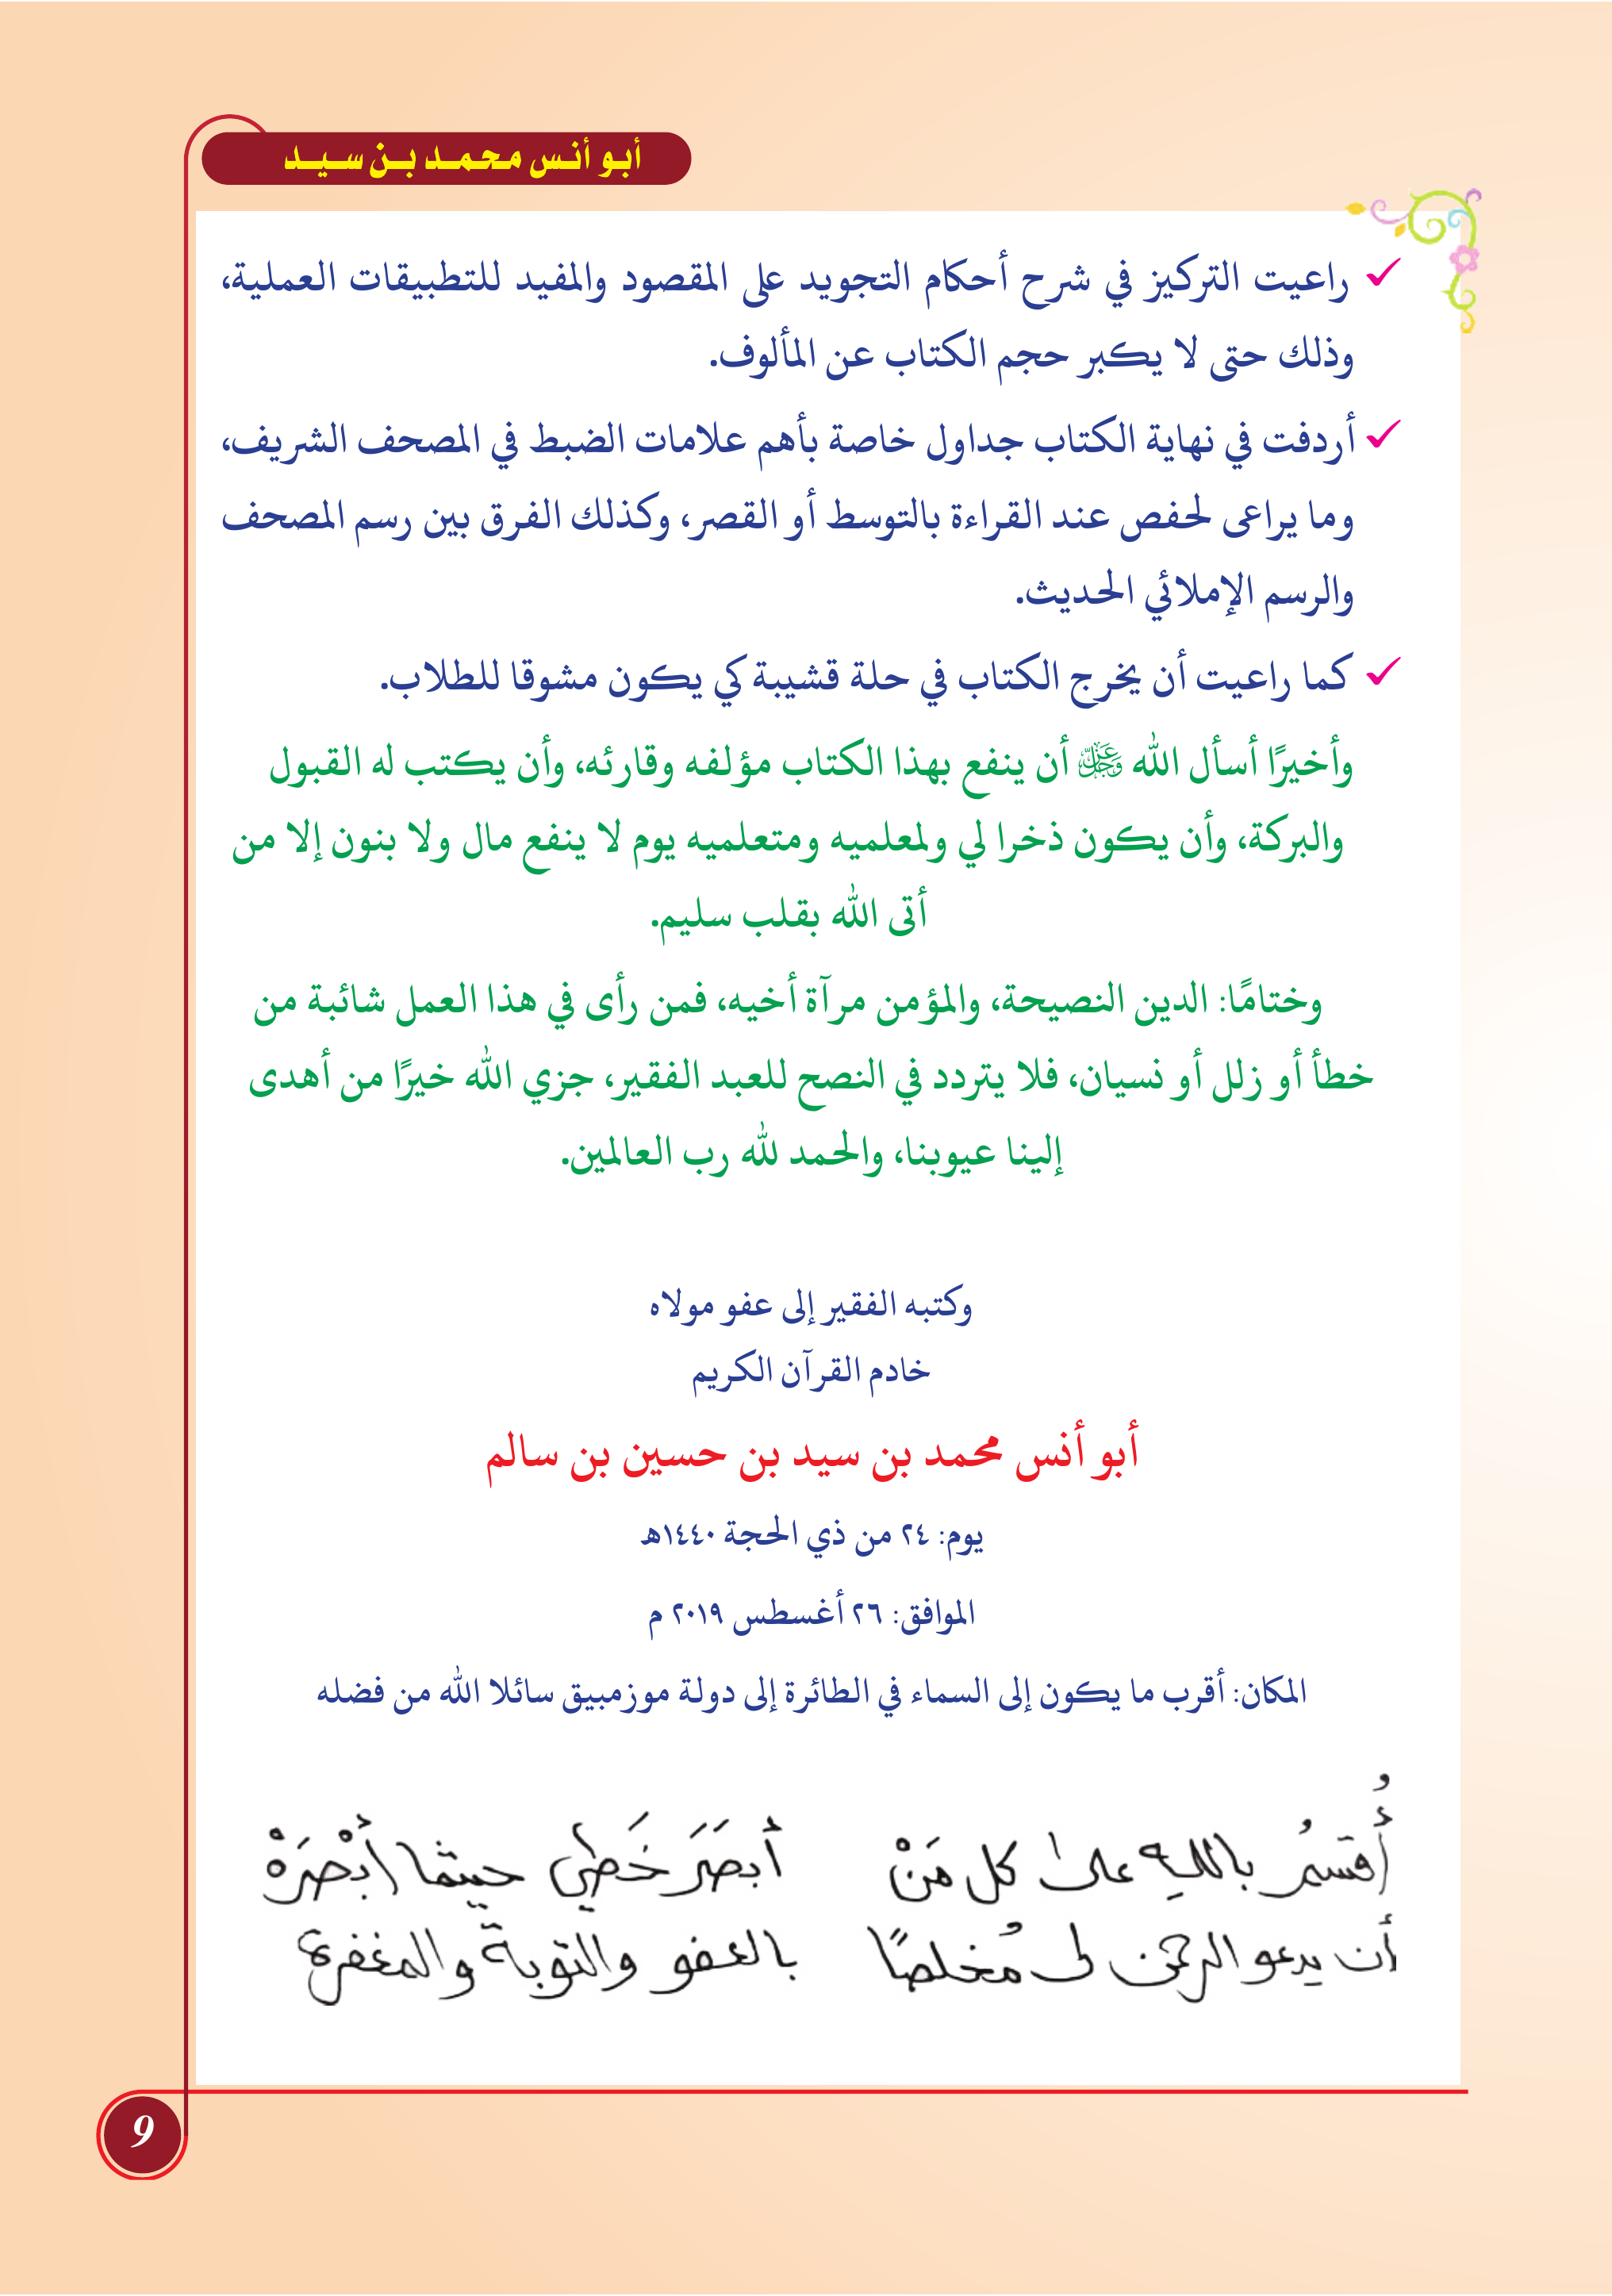 أبو أنس محمد بن سيد
راعيت التركيز في شرح أحكام التجويد على المقصود والمفيد للتطبيقات العملية،
وذلك حتى لا يكبر حجم الكتاب عن المألوف.
أردفت في نهاية الكتاب جداول خاصة بأهم علامات الضبط في المصحف الشريف،
وما يراعى لحفص عند القراءة بالتوسط أو القصر، وكذلك الفرق بين رسم المصحف
والرسم الإملائي الحديث.
كما راعيت أن يخرج الكتاب في حلة قشيبة كي يكون مشوقا للطلاب.
وأخيرًا أسأل الله ﷿ أن ينفع بهذا الكتاب مؤلفه وقارئه، وأن يكتب له القبول
والبركة، وأن يكون ذخرا لي ولمعلميه ومتعلميه يوم لا ينفع مال ولا بنون إلا من
أتى الله بقلب سليم.
وختامًا: الدين النصيحة، والمؤمن مرآة أخيه، فمن رأى في هذا العمل شائبة من
خطأ أو زلل أو نسيان، فلا يتردد في النصح للعبد الفقير، جزي الله خيرًا من أهدى
إلينا عيوبنا، والحمد لله رب العالمين.
وكتبه الفقير إلى عفو مولاه
خادم القرآن الكريم
أبو أنس محمد بن سيد بن حسين بن سالم
يوم: ٢٤ من ذي الحجة ١٤٤٠هـ
الموافق: ٢٦ أغسطس ٢٠١٩ م
المكان: أقرب ما يكون إلى السماء في الطائرة إلى دولة موزمبيق سائلا الله من فضله
أُقسمُ باللهِ على كل مَنْ أبصَرَ خَطي حيثما أبْصَرَهْ
أن يدعو الرحمن لى مُخلصًا بالعفو والتوبة والمغفرة
9